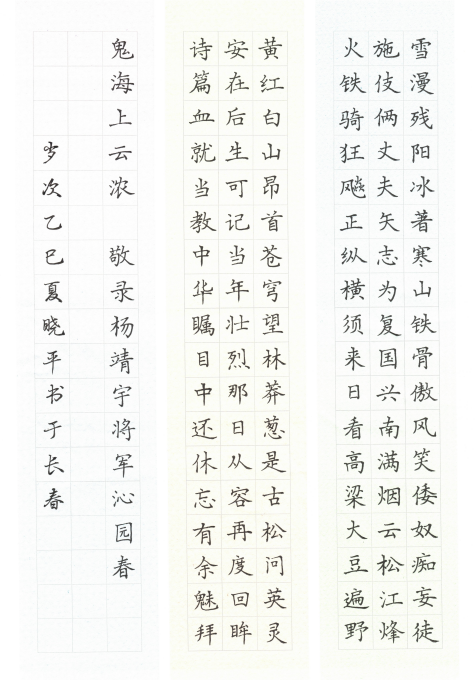 雪漫残阳冰著寒山铁骨傲风笑倭奴痴妄徒
施伎俩丈夫矢志为复国兴南满烟云松江烽
火铁骑狂飚正纵横须来日看高梁大豆遍野
黄红白山昂首苍穹望林莽葱是古松问英灵
安在后生可记当年壮烈那日从容再度回眸
诗篇血就当教中华瞩目中还休忘有余魅拜
鬼海上云浓 敬录杨靖宇将军沁园春
岁次乙巳夏晓平书于长春